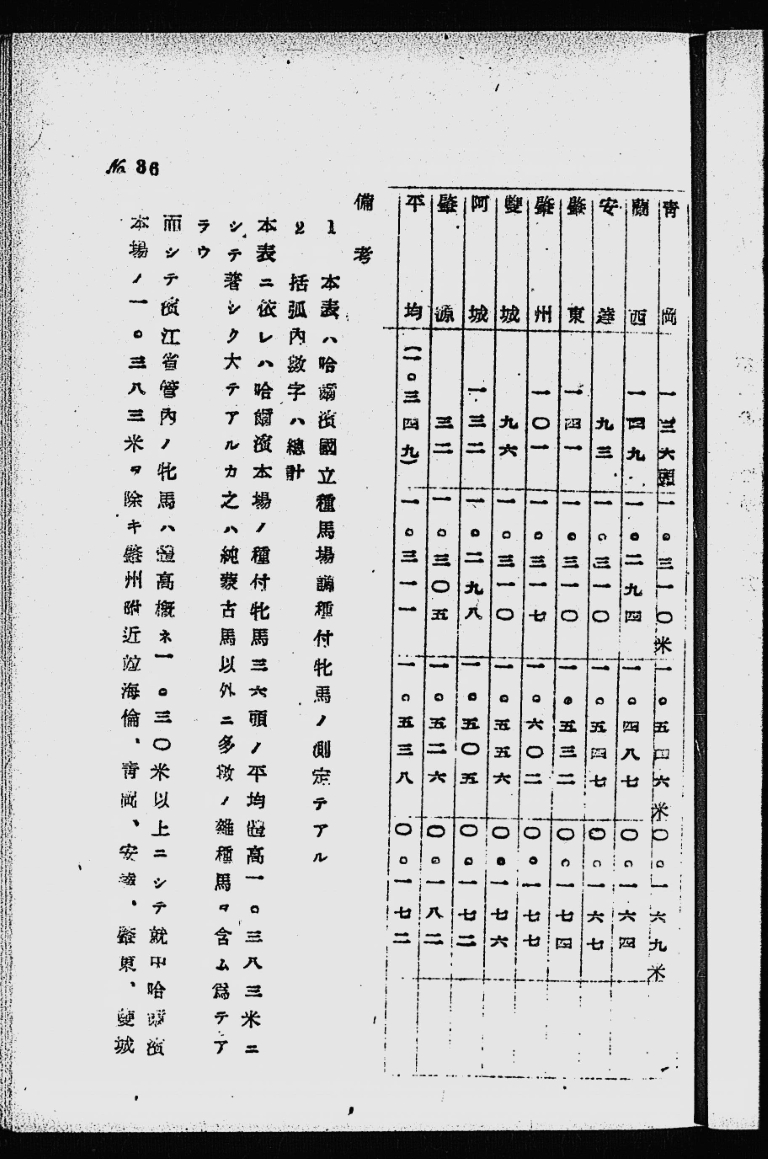 青岡 一三六頭 一。三一〇米 一。五四六米 〇。一六九米
蘭西 一四九 一。二九四 一。四八七 〇。一六四
安達 九三 一。三一〇 一。五四七 〇。一六七
肇東 一四一 一。三一〇 一。五三二 〇。一七四
肇州 一〇一 一。三一七 一。六〇二 〇。一七七
雙城 九六 一。三一〇 一。五五六 〇。一七六
阿城 一三二 一。二九八 一。五〇五 〇。一七二
肇源 三二 一。三〇五 一。五二六 〇。一八二
平均 (一。〇三四九) 一。三一一 一。五三八 〇。一七二
備考
1 本表ハ哈爾濱國立種馬場調種付牝馬ノ測定テアル
2 括弧內數字ハ總計
本表ニ依レハ哈爾濱本場ノ種付牝馬三六頭ノ平均體高一。三八三米ニ
シテ著シク大テアルカ之ハ純蒙古馬以外ニ多數ノ雜種馬ヲ含ム爲テア
ラウ
而シテ濱江省管內ノ牝馬ハ體高概ネ一。三〇米以上ニシテ就中哈爾濱
本場ノ一。三八三米ヲ除キ肇州附近竝海倫、靑岡、安達、肇東、雙城
No 36